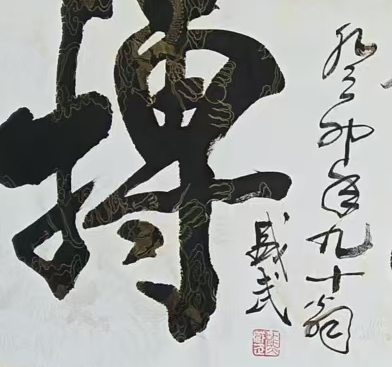 搏
癸卯年九十翁
盛武